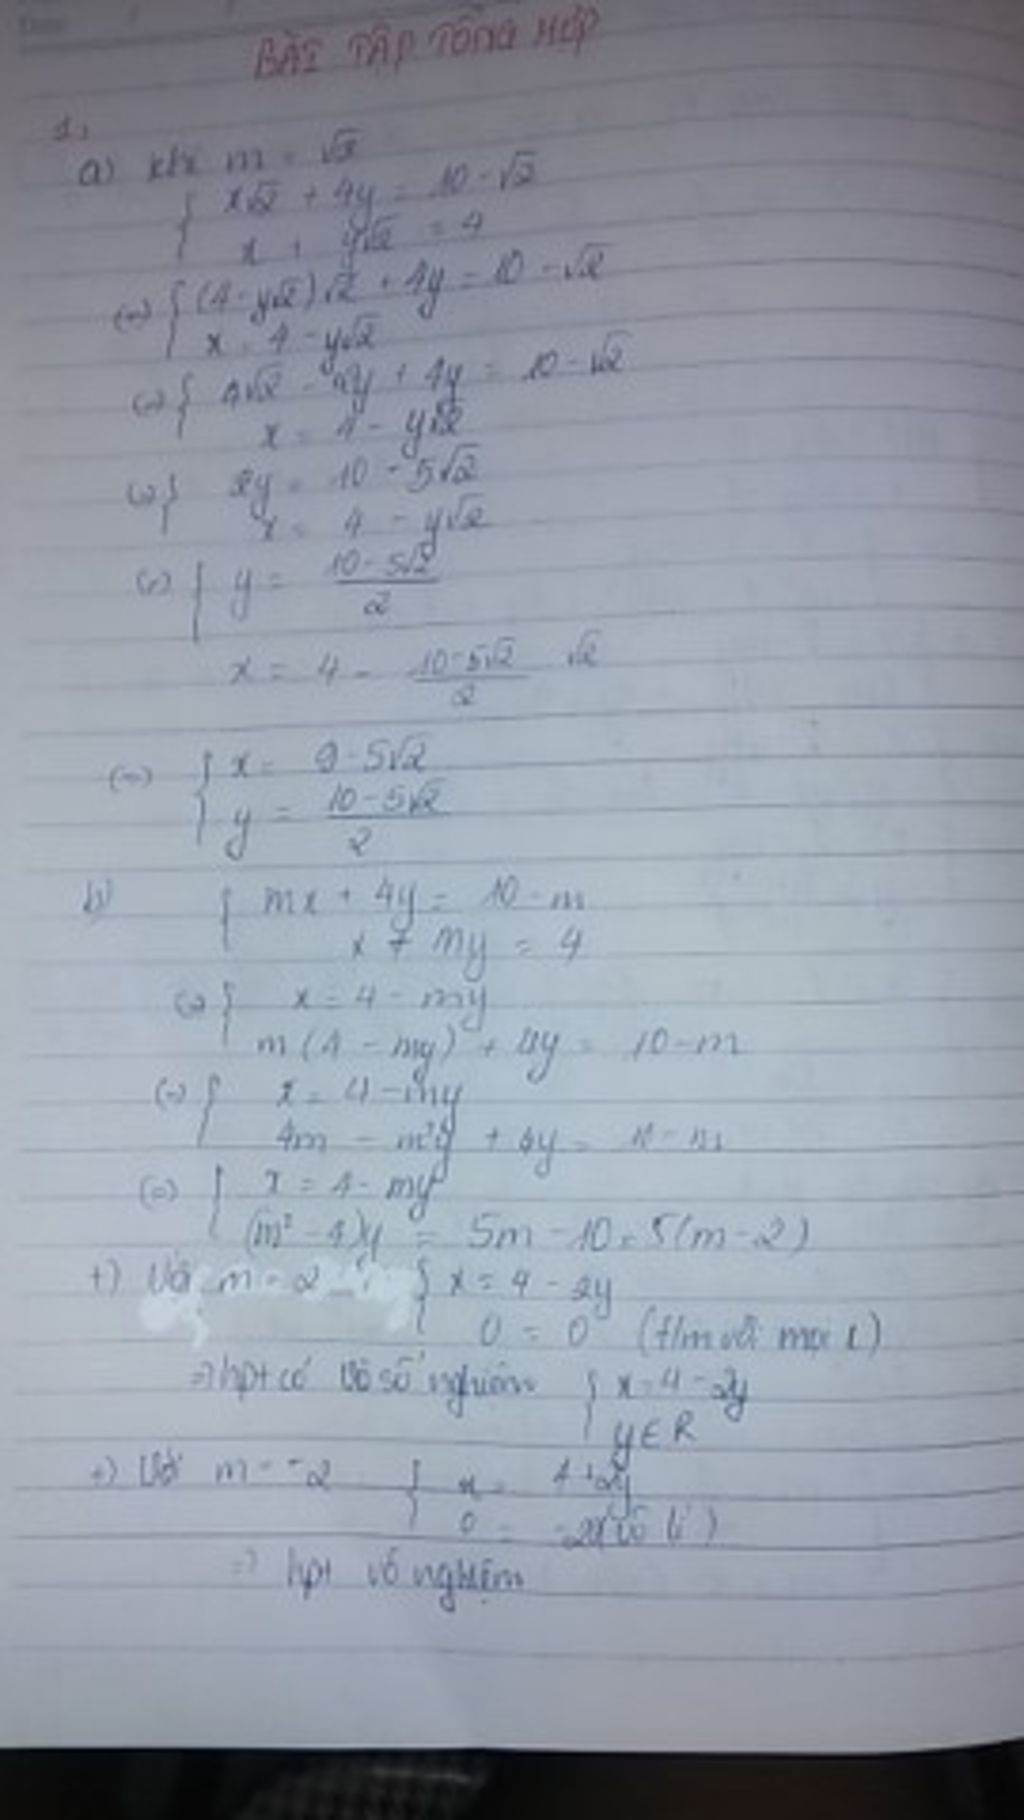 BÀI TẬP TỔNG HỢP
1,
a) khi m = √2
{ x√2 + 4y = 10 - √2
x + y√2 = 4
(=) { (4 - y√2)√2 + 4y = 10 - √2
x = 4 - y√2
(=) { 4√2 - 2y + 4y = 10 - √2
x = 4 - y√2
(=) { 2y = 10 - 5√2
x = 4 - y√2
(=) { y = (10 - 5√2)/2
x = 4 - (10 - 5√2)/2 √2
(=) { x = 9 - 5√2
y = (10 - 5√2)/2
b) { mx + 4y = 10 - m
x + my = 4
(=) { x = 4 - my
m(4 - my) + 4y = 10 - m
(=) { x = 4 - my
4m - m²y + 4y = 10 - m
(=) { x = 4 - my
(m² - 4)y = 5m - 10 = 5(m - 2)
+) Với m = 2 { x = 4 - 2y
0 = 0 (t/m với mọi
=> hpt có vô số nghiệm { x = 4 - 2y
y ∈ R
+) Với m = -2 { x = 4 + 2y
0 = -20 (vô lí)
=> hpt vô nghiệm